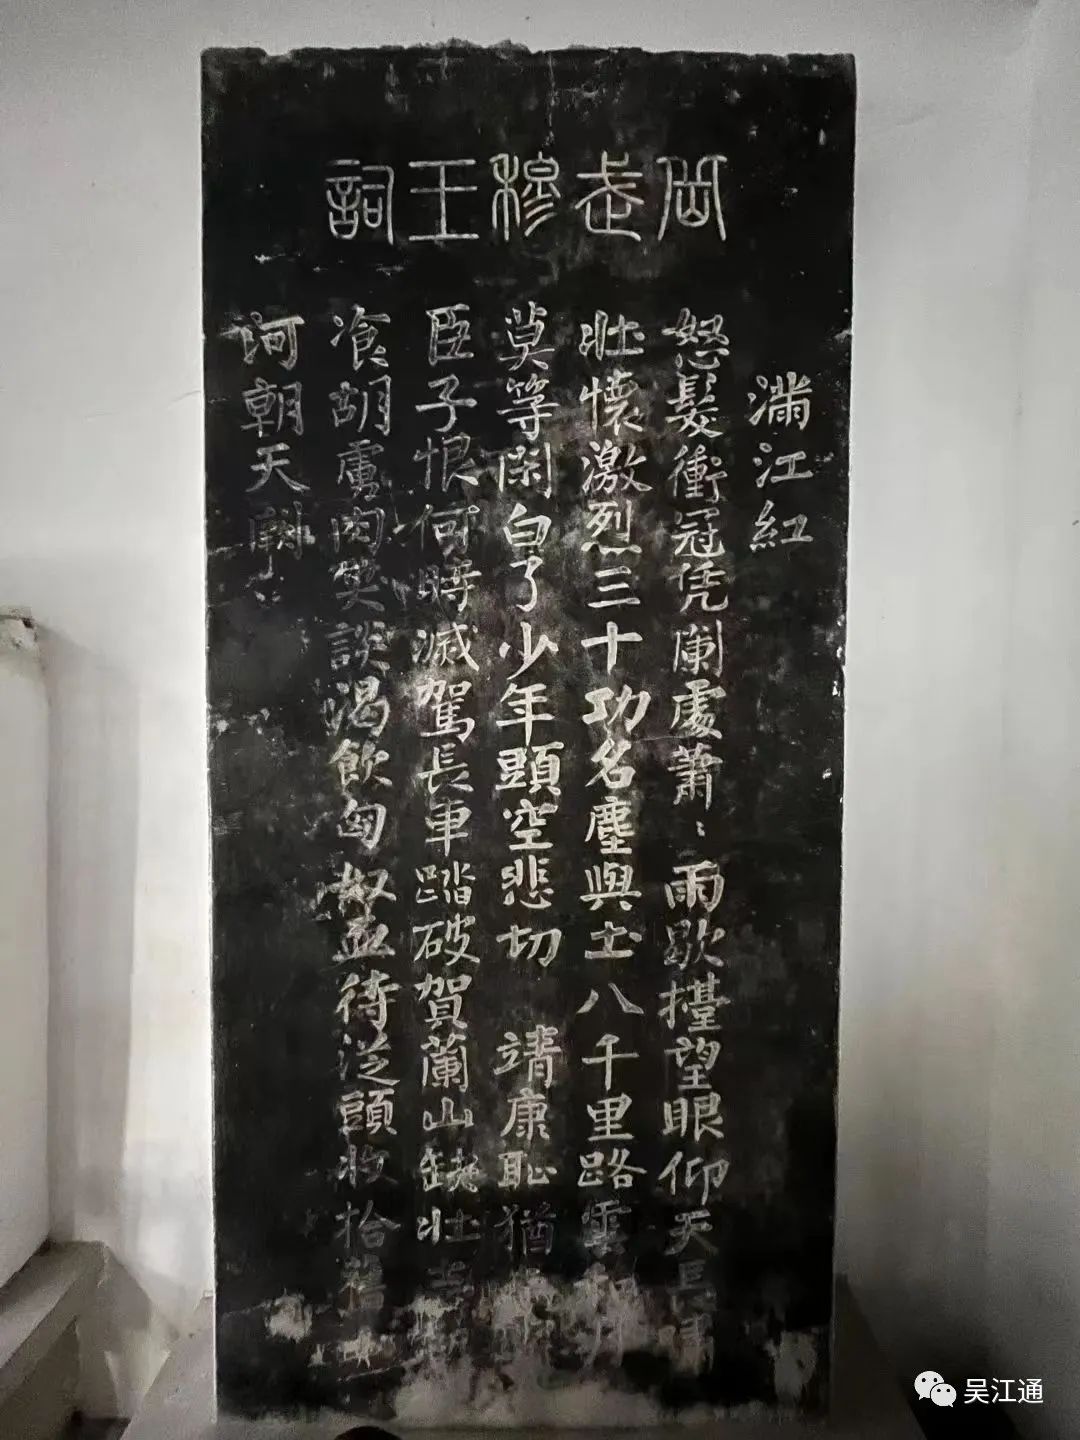 岳武穆王詞
滿江紅
怒髮衝冠凭闌處蕭〻雨歇擡望眼仰天長嘯
壯懷激烈三十功名塵與圡八千里路雲和月
莫等閑白了少年頭空悲切 靖康恥猶
臣子恨何時滅駕長車踏破賀蘭山缺壯志
飡胡虜肉笑談渴飲匈奴血待從頭收拾舊山
河朝天闕
吴江通